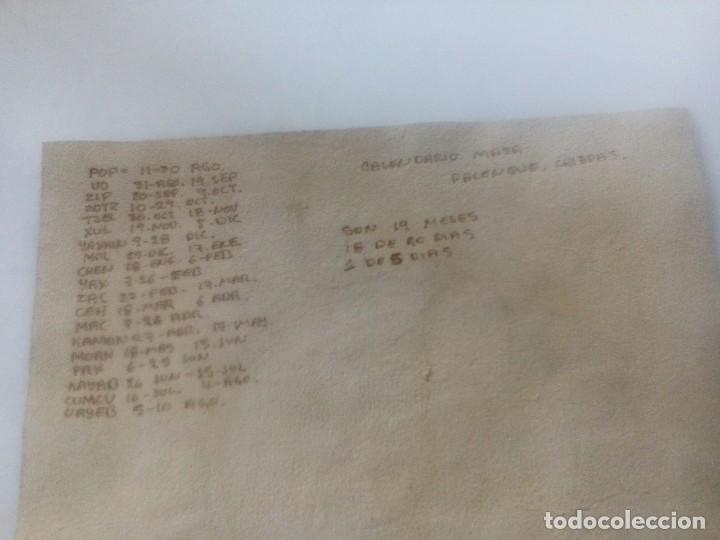 POP = 11-30 AGO.
UO 31-AGO. 19 SEP
ZIP 20-SEP. 9 OCT.
ZOTZ 10-29. OCT.
TZEL 30. OCT 18-NOV
XUL 19. NOV. 8. DIC
9-28 DIC.
MOL 29-DIC. 17. ENE
CHEN 18-ENE 6-FEB
YAX 7-26-FEB
ZAC 27-FEB. 17. MAR.
CEH 18-MAR 6 ABR.
MAC 7-26 ABR
27. ABR. 17. MAY.
MOAN 18-MAY 15. JUN
PAX 6-25 JUN
KAYAB 26 JUN - 15-JUL
CUMCU 16-JUL 4-AGO.
UAYEB 5-10 AGO.
CALENDARIO MAYA
PALENQUE. CHIAPAS.
SON 19 MESES
18 DE 20 DIAS
1 DE 5 DIAS
todocoleccion